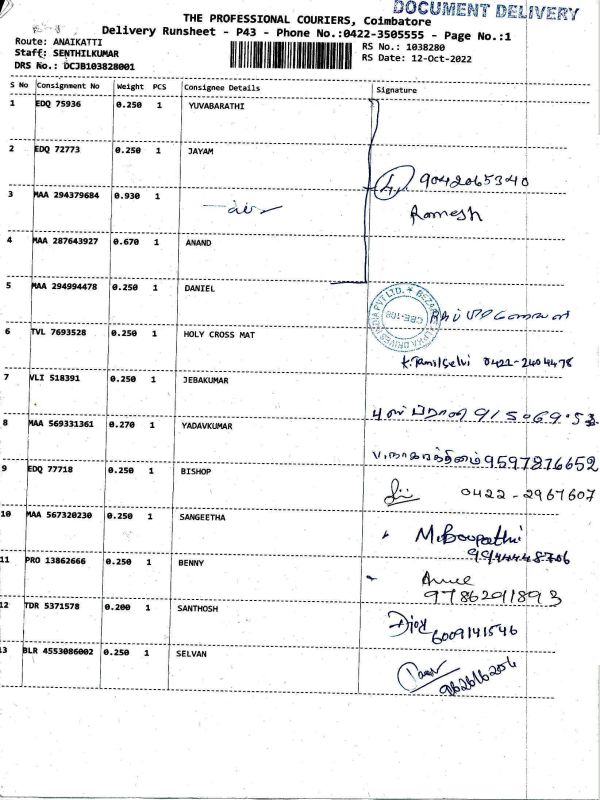 DOCUMENT DELIVERY
THE PROFESSIONAL COURIERS, Coimbatore
Delivery Runsheet - P43 - Phone No.:0422-3505555 - Page No.:1
Route: ANAIKATTI
Staff: SENTHILKUMAR
DRS No.: DCJB103828001
RS No.: 1038280
RS Date: 12-Oct-2022
S No Consignment No Weight PCS Consignee Details Signature
1 EDQ 75936 0.250 1 YUVABARATHI
2 EDQ 72773 0.250 1 JAYAM
9042065340
3 MAA 294379684 0.930 1
Ramesh
4 MAA 287643927 0.670 1 ANAND
5 MAA 294994478 0.250 1 DANIEL
6 TVL 7693528 0.250 1 HOLY CROSS MAT
K.Tamilselvi 0422-2404478
7 VLI 518391 0.250 1 JEBAKUMAR
8 MAA 569331361 0.270 1 YADAVKUMAR
9597876652
9 EDQ 77718 0.250 1 BISHOP
0422-2967607
10 MAA 567320230 0.250 1 SANGEETHA
M.Boopathi
9944448706
11 PRO 13862666 0.250 1 BENNY
9786291893
12 TDR 5371578 0.200 1 SANTHOSH
6009141546
13 BLR 4553086002 0.250 1 SELVAN